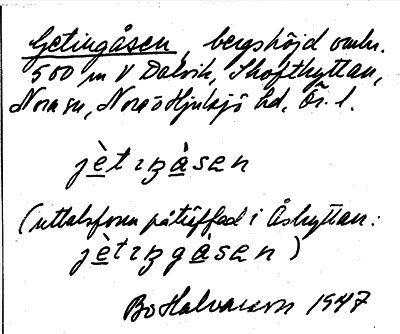 Getingåsen, bergshöjd omkr.
500 m V Dalvik, Skofthyttan,
Nora sn, Nora o Hjulsjö hd, Ör. l.
jètɪŋåsen
(uttalsform påträffad i Åshyttan:
jètɪŋgåsen)
Bo Halvarsson 1947